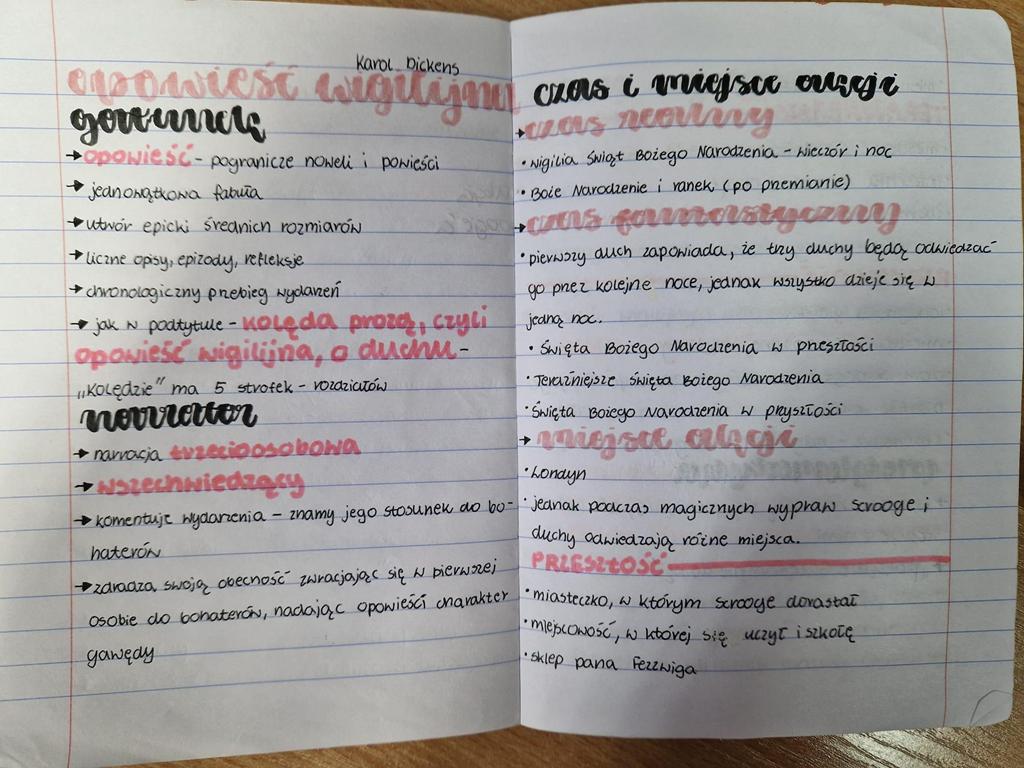 Karol Dickens
opowieść wigilijna
gatunek
→ opowieść - pogranicze noweli i powieści
→ jednowątkowa fabuła
→ utwór epicki średnich rozmiarów
→ liczne opisy, epizody, refleksje
→ chronologiczny przebieg wydarzeń
→ jak w podtytule - kolęda prozą, czyli
opowieść wigilijna, o duchu -
„kolędzie” ma 5 strofek - rozdziałów
narrator
→ narracja trzecioosobowa
→ wszechwiedzący
→ komentuje wydarzenia - znamy jego stosunek do bo-
haterów
→ zdradza swoją obecność zwracając się w pierwszej
osobie do bohaterów, nadając opowieści charakter
gawędy
czas i miejsce akcji
→ czas realny
• Wigilia Świąt Bożego Narodzenia - wieczór i noc
• Boże Narodzenie i ranek (po przemianie)
→ czas fantastyczny
• pierwszy duch zapowiada, że trzy duchy będą odwiedzać
go przez kolejne noce, jednak wszystko dzieje się w
jedną noc.
• Święta Bożego Narodzenia w przeszłości
• Teraźniejsze święta Bożego Narodzenia
• Święta Bożego Narodzenia w przyszłości
→ miejsce akcji
• Londyn
• jednak podczas magicznych wypraw Scrooge i
duchy odwiedzają różne miejsca.
PRZESZŁOŚĆ
• miasteczko, w którym Scrooge dorastał
• miejscowość, w której się uczył i szkołę
• sklep pana Fezzwiga